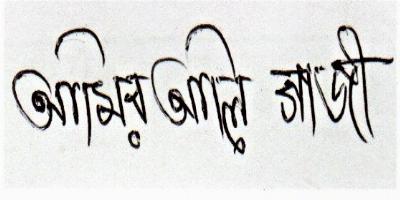 আমির আলি গাজী